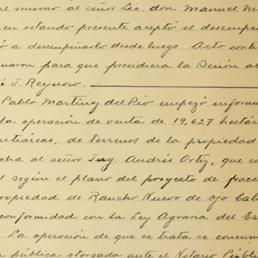 el mismo al señor Lic. don Manuel
en estando presente aceptó el desempeñ
ó a desempeñarlo desde luego. Acto conti
naron para que presidiera la Sesión al
é J. Reynoso.
Pablo Martínez del Río empezó inform
la operación de venta de 19,627 hectár
entiáreas, de terrenos de la propiedad
cha al señor Ing. Andrés Ortiz, que co
l según el plano del proyecto de fracc
ropiedad de Rancho Nuevo de Ojo Cali
conformidad con la Ley Agraria del Es
. La operación de que se trata se consum
a pública otorgada ante el Notario Públi